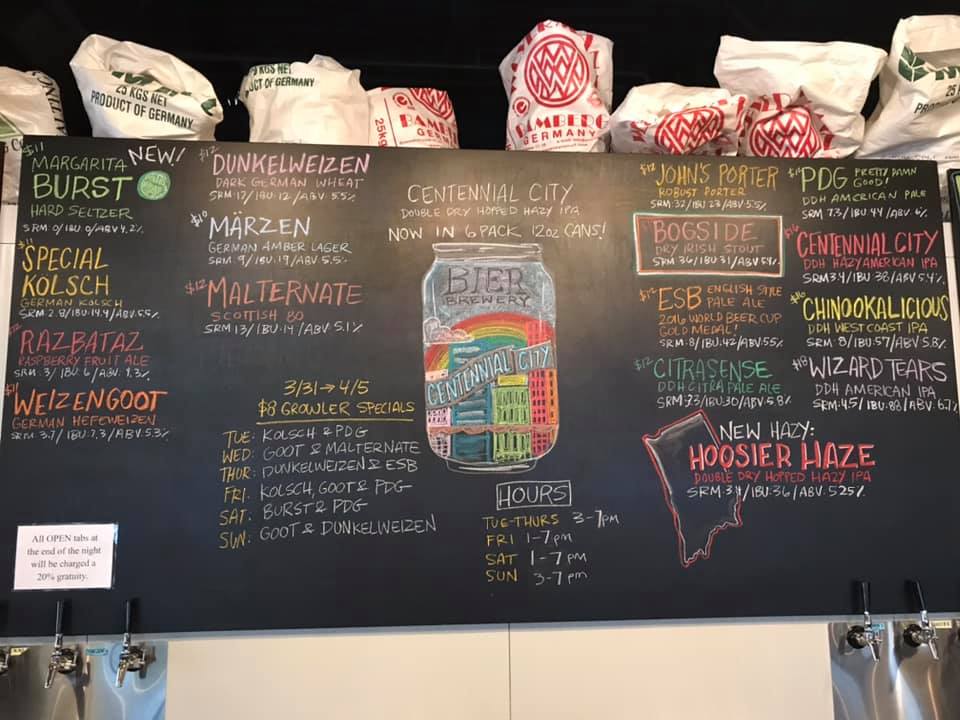 25 KGS NET
PRODUCT OF GERMANY
25 KGS NET
UCT OF GERMANY
25KG
BAMBERG
GERMANY
BAMBERG
GERMANY
$11
MARGARITA NEW!
BURST
HARD SELTZER
SRM: 0/IBU: 0/ABV 4.2%
$11
SPECIAL
KOLSCH
GERMAN KOLSCH
SRM: 2.8/IBU: 19.4/ABV: 5.5%
RAZBATAZ
RASPBERRY FRUIT ALE
SRM: 3/IBU: 6/ABV: 4.3%
$11
WEIZENGOOT
GERMAN HEFEWEIZEN
SRM: 3.7/IBU: 7.3/ABV: 5.3%
$12
DUNKELWEIZEN
DARK GERMAN WHEAT
SRM: 17/IBU: 12/ABV: 5.5%
$10
MÄRZEN
GERMAN AMBER LAGER
SRM: 9/IBU: 19/ABV: 5.5%
$12
MALTERNATE
SCOTTISH 80
SRM 13/IBU: 14/ABV: 5.1%
3/31 → 4/5
$8 GROWLER SPECIALS
TUE: KOLSCH & PDG
WED: GOOT & MALTERNATE
THUR: DUNKELWEIZEN & ESB
FRI: KOLSCH, GOOT & PDG
SAT: BURST & PDG
SUN: GOOT & DUNKELWEIZEN
CENTENNIAL CITY
DOUBLE DRY HOPPED HAZY IPA
NOW IN 6 PACK 12oz CANS!
BIER
BREWERY
CENTENNIAL CITY
HOURS
TUE-THURS 3-7pm
FRI 1-7pm
SAT 1-7pm
SUN 3-7pm
$12
JOHN'S PORTER
ROBUST PORTER
SRM: 32/IBU 23/ABV: 5.5%
BOGSIDE
DRY IRISH STOUT
SRM 36/IBU 31/ABV 5.4%
$12
ESB ENGLISH STYLE
PALE ALE
2016 WORLD BEER CUP
GOLD MEDAL!
SRM: 8/IBU: 42/ABV: 5.5%
$12
CITRASENSE
DDH CITRA PALE ALE
SRM: 3.3/IBU: 30/ABV: 5.8%
NEW HAZY:
HOOSIER HAZE
DOUBLE DRY HOPPED HAZY IPA
SRM: 3.4/IBU: 36/ABV: 5.25%
PDG PRETTY DAMN
GOOD!
DDH AMERICAN PALE
SRM 7.3/IBU: 44/ABV: 6%
$16
CENTENNIAL CITY
DDH HAZY AMERICAN IPA
SRM 3.4/IBU: 38/ABV: 5.4%
$16
CHINOOKALICIOUS
DDH WEST COAST IPA
SRM: 8/IBU: 57/ABV: 5.8%
$18
WIZARD TEARS
DDH AMERICAN IPA
SRM: 4.5/IBU: 88/ABV: 6.7%
All OPEN tabs at
the end of the night
will be charged a
20% gratuity.